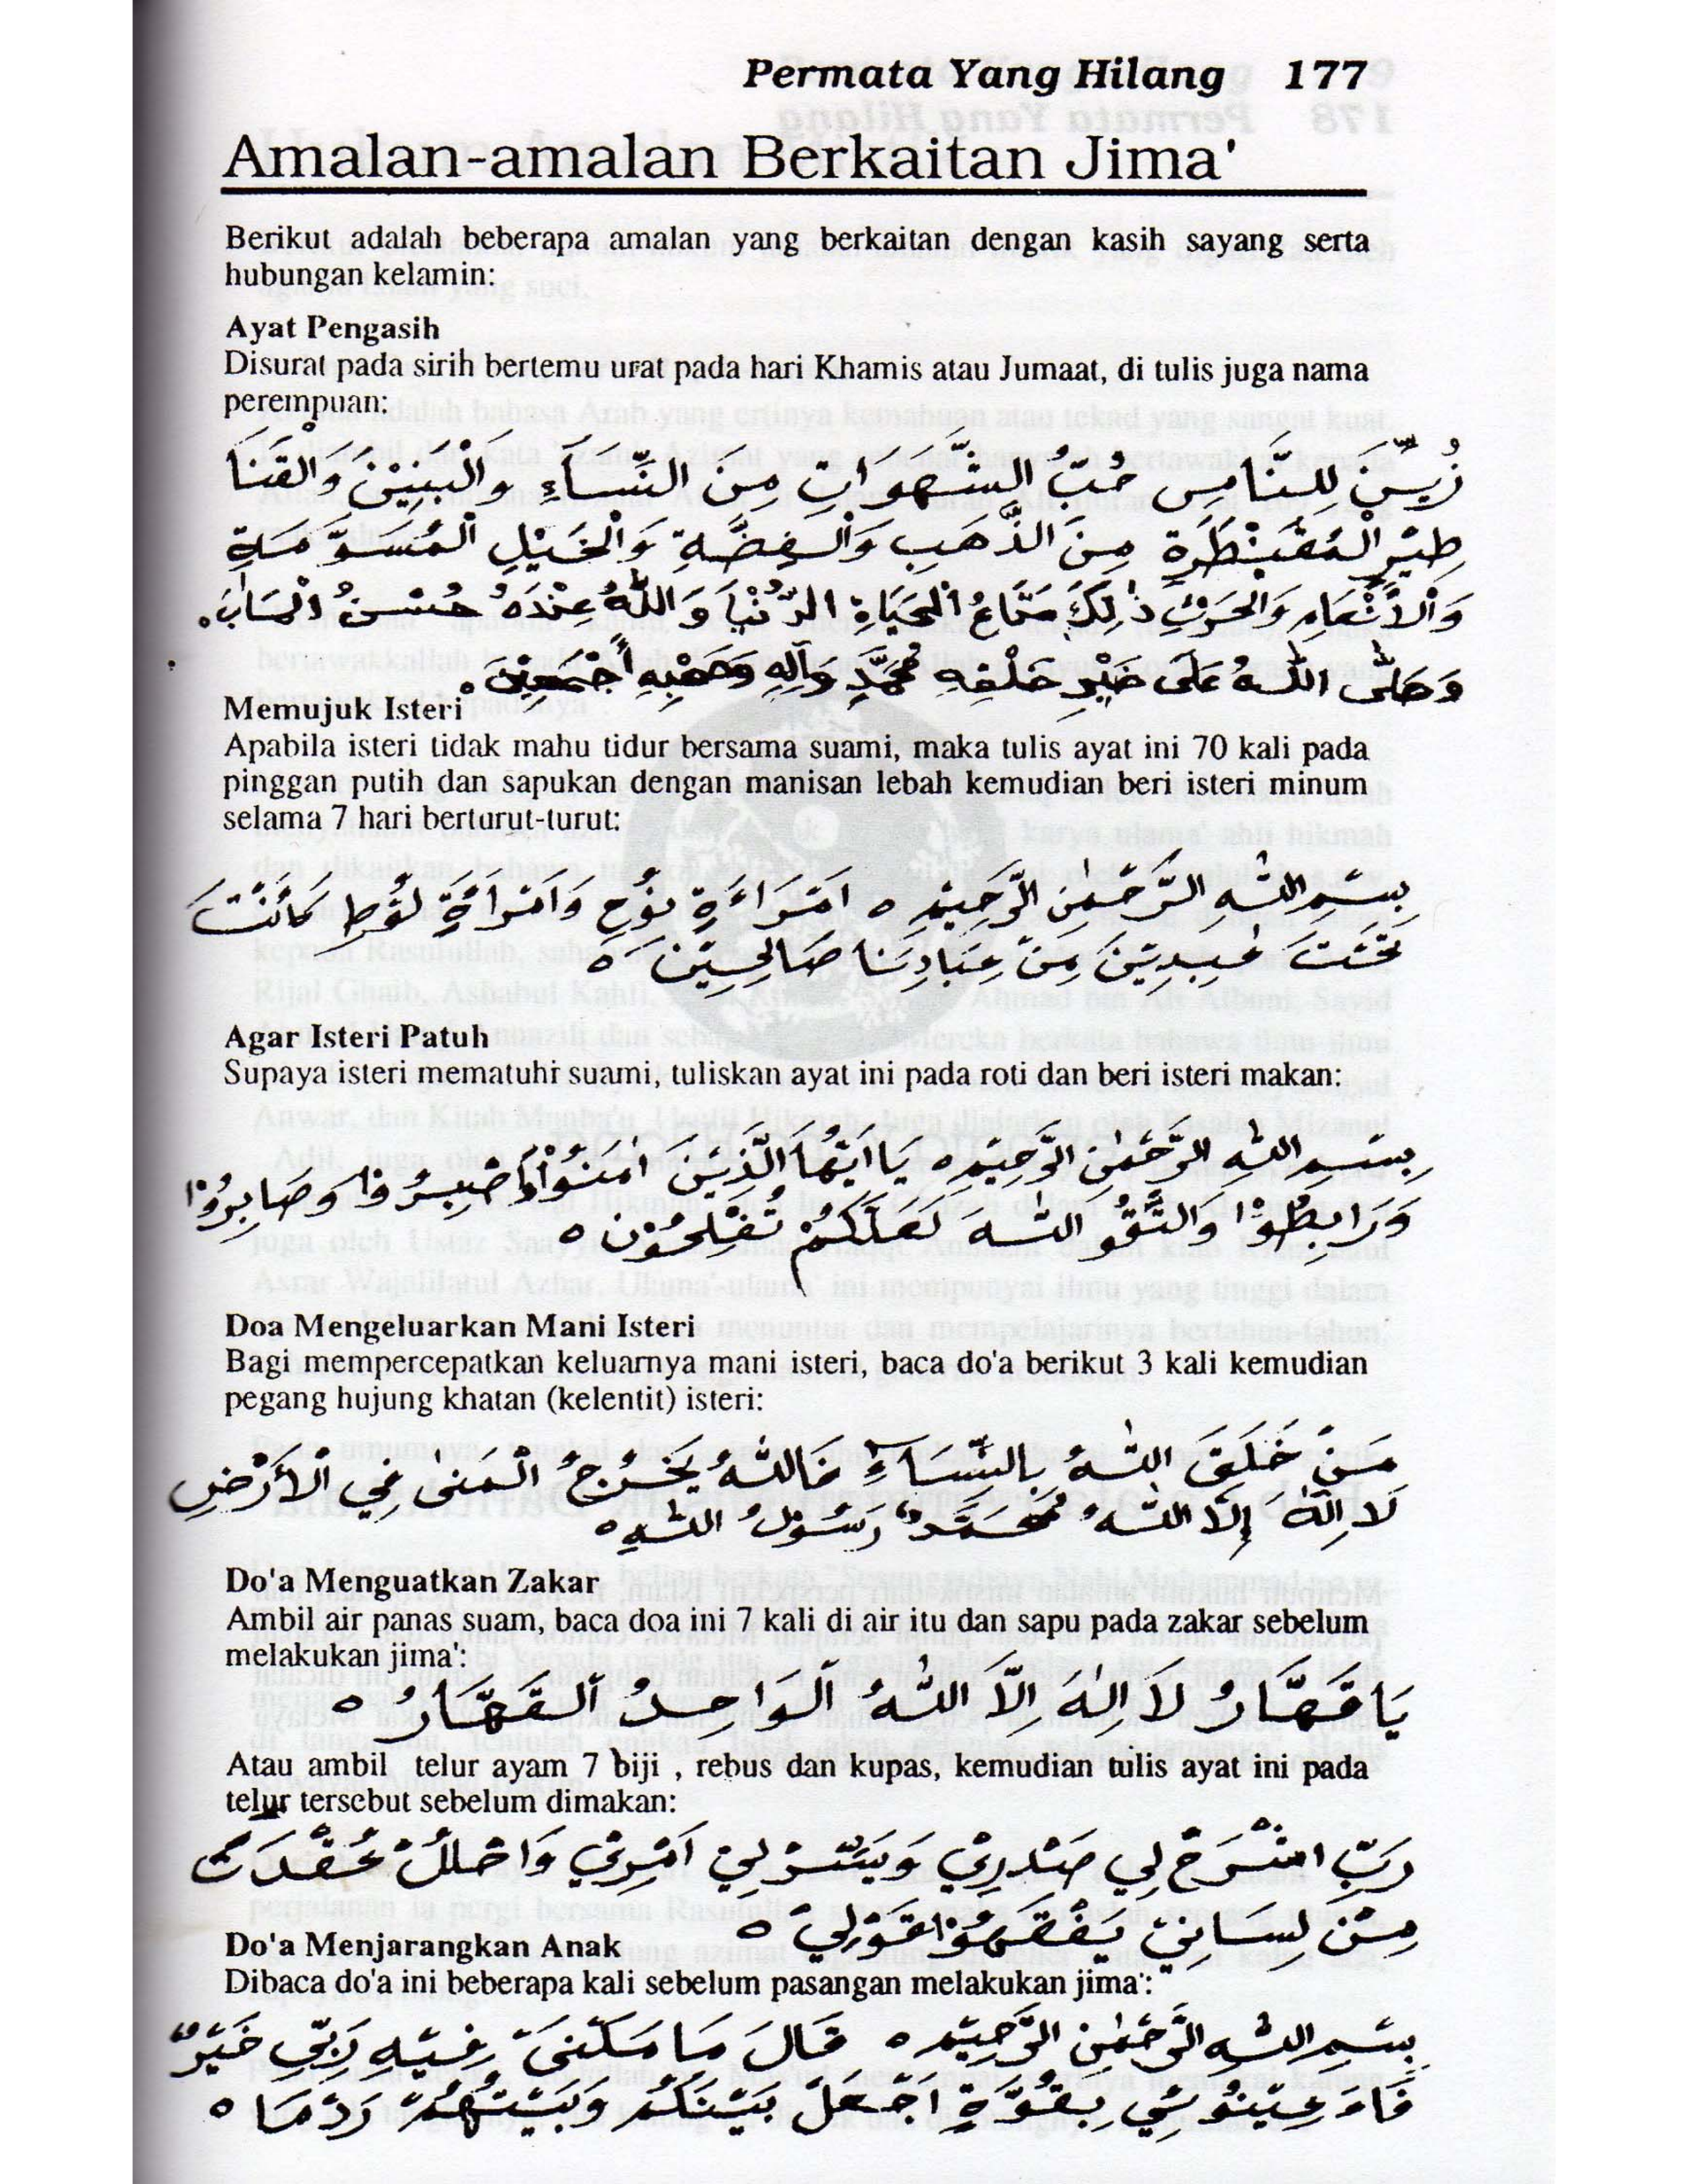 Permata Yang Hilang 177
Amalan-amalan Berkaitan Jima'
Berikut adalah beberapa amalan yang berkaitan dengan kasih sayang serta
hubungan kelamin:
Ayat Pengasih
Disurat pada sirih bertemu urat pada hari Khamis atau Jumaat, di tulis juga nama
perempuan:
زُيِّنَ لِلنَّاسِ حُبُّ الشَّهَوَاتِ مِنَ النِّسَاءِ وَالْبَنِيْنَ وَالْقَنَا
طِيْرِ الْمُقَنْطَرَةِ مِنَ الذَّهَبِ وَالْفِضَّةِ وَالْخَيْلِ الْمُسَوَّمَةِ
وَالْاَنْعَامِ وَالْحَرْثِ ذٰلِكَ مَتَاعُ الْحَيَاةِ الدُّنْيَا وَاللّٰهُ عِنْدَهُ حُسْنُ
وَصَلَّى اللّٰهُ عَلَى خَيْرِ خَلْقِهِ مُحَمَّدٍ وَآلِهِ وَصَحْبِهِ أَجْمَعِيْنَ.
Memujuk Isteri
Apabila isteri tidak mahu tidur bersama suami, maka tulis ayat ini 70 kali pada
pinggan putih dan sapukan dengan manisan lebah kemudian beri isteri minum
selama 7 hari berturut-turut:
بِسْمِ اللّٰهِ الرَّحْمٰنِ الرَّحِيْمِ ٥ امْرَاءَةَ نُوْحٍ وَامْرَأَةَ لُوْطٍ كَانَتَا
تَحْتَ عَبْدَيْنِ مِنْ عِبَادِنَا صَالِحَيْنِ ٥
Agar Isteri Patuh
Supaya isteri mematuhi suami, tuliskan ayat ini pada roti dan beri isteri makan:
بِسْمِ اللّٰهِ الرَّحْمٰنِ الرَّحِيْمِ ٥ يَا اَيُّهَا الَّذِيْنَ اٰمَنُوْا اصْبِرُوْا وَصَابِرُوْا
وَرَابِطُوْا وَاتَّقُو اللّٰهَ لَعَلَّكُمْ تُفْلِحُوْنَ ٥
Doa Mengeluarkan Mani Isteri
Bagi mempercepatkan keluarnya mani isteri, baca do'a berikut 3 kali kemudian
pegang hujung khatan (kelentit) isteri:
مَنْ خَلَقَ اللّٰهُ بِالنِّسَاءِ فَاللّٰهُ يَخْرُجُ الْمَنٰى فِي الْأَرْضِ
لَا اِلٰهَ إِلَّا اللّٰهُ مُحَمَّدٌ رَسُوْلُ اللّٰهِ ٥
Do'a Menguatkan Zakar
Ambil air panas suam, baca doa ini 7 kali di air itu dan sapu pada zakar sebelum
melakukan jima':
يَا قَهَّارُ لَا اِلٰهَ اِلَّا اللّٰهُ الْوَاحِدُ الْقَهَّارُ ٥
Atau ambil telur ayam 7 biji , rebus dan kupas, kemudian tulis ayat ini pada
telur tersebut sebelum dimakan:
رَبِّ اشْرَحْ لِي صَدْرِيْ وَيَسِّرْ لِيْ اَمْرِيْ وَاحْلُلْ
مِنْ لِسَانِيْ يَفْقَهُوْا قَوْلِيْ ٥
Do'a Menjarangkan Anak
Dibaca do'a ini beberapa kali sebelum pasangan melakukan jima':
بِسْمِ اللّٰهِ الرَّحْمٰنِ الرَّحِيْمِ ٥ قَالَ مَا مَكَّنِّيْ فِيْهِ رَبِّي خَيْرٌ
فَاَعِيْنُوْنِيْ بِقُوَّةٍ اَجْعَلْ بَيْنَكُمْ وَبَيْنَهُمْ رَدْمًا ٥